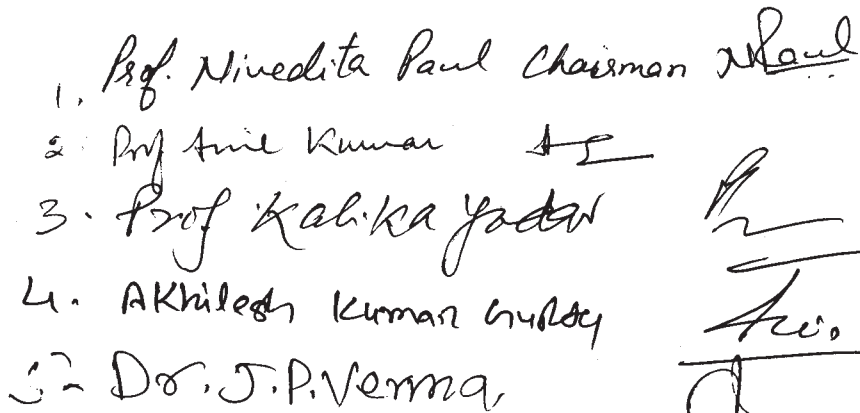 1. Prof. Nivedita Paul Chairman NPaul
2 Prof Anil Kumar
3. Prof Kalika Yadav
4. Akhilesh Kumar
5- Dr. J.P. Verma,